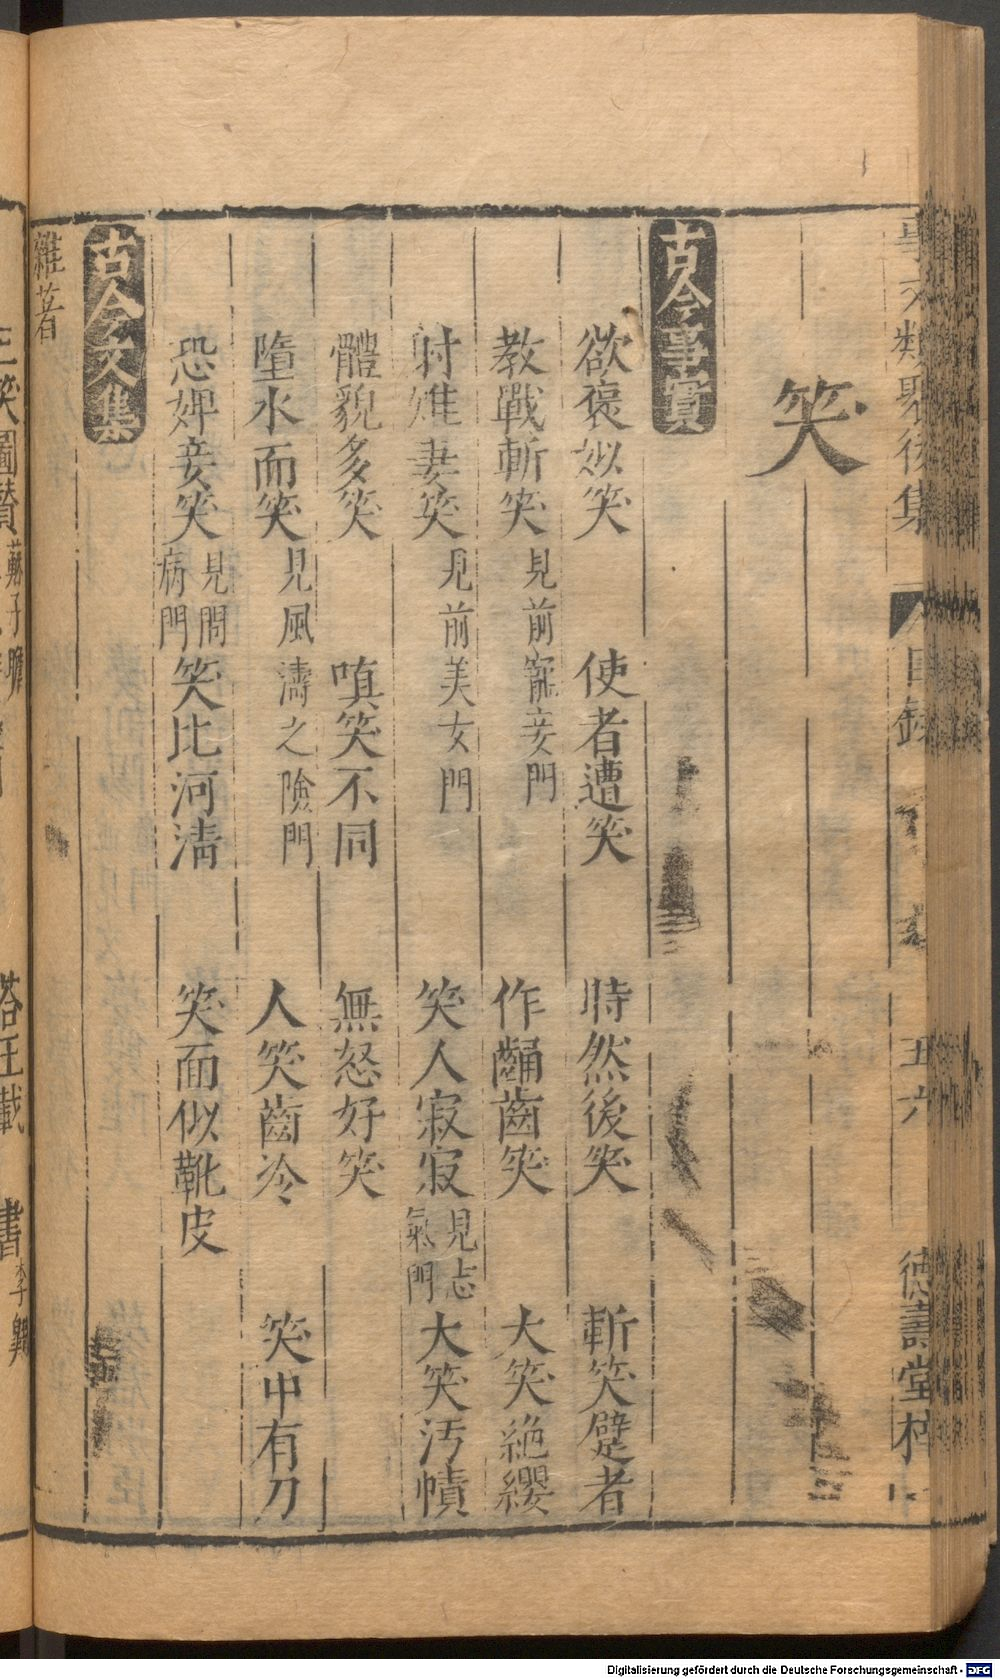 事文類聚後集 目錄 五六 德壽堂梓
笑
古今事實
欲褒姒笑 使者遭笑 時然後笑 斬笑躄者
教戰斬笑 見前寵妾門 作齲齒笑 大笑絶纓
射雉妻笑 見前美女門 笑人寂寂 見志氣門 大笑汚幘
體貌多笑 嗔笑不同 無怒好笑
墮水而笑 見風濤之險門 人笑齒冷 笑中有刀
恐婢妾笑 見問病門 笑比河淸 笑面似靴皮
古今文集
雜著
三笑圖贊 蘇子瞻 答王載 書 李翱
Digitalisierung gefördert durch die Deutsche Forschungsgemeinschaft - DFG